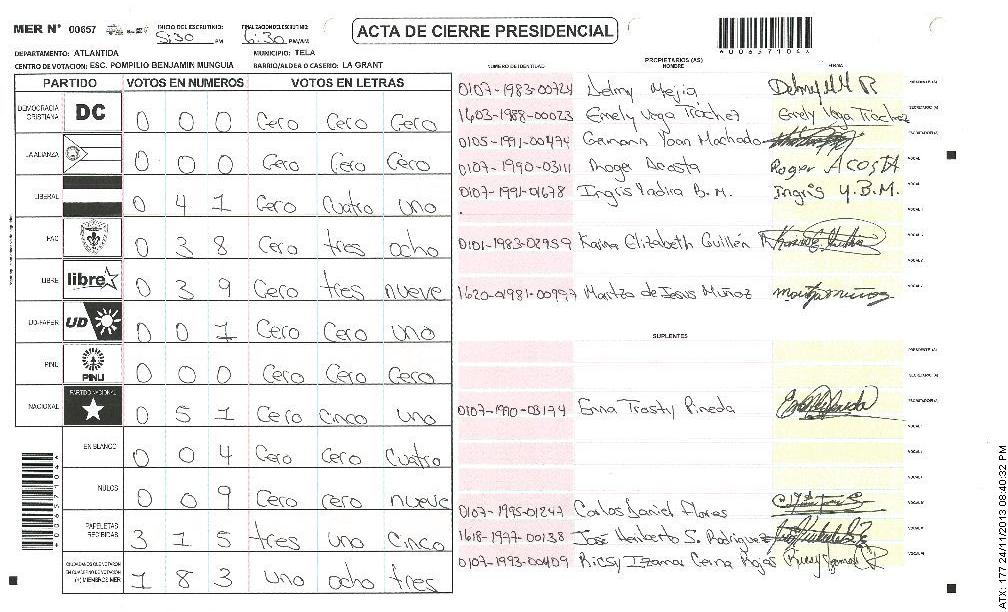 MER Nº 00657 INICIO DEL ESCRUTINIO: 5:30 PM FINALIZACION DEL ESCRUTINIO: 6:30 PM/AM
ACTA DE CIERRE PRESIDENCIAL
DEPARTAMENTO: ATLANTIDA MUNICIPIO: TELA
CENTRO DE VOTACION: ESC. POMPILIO BENJAMIN MUNGUIA BARRIO/ALDEA O CASERIO: LA GRANT
PARTIDO VOTOS EN NUMEROS VOTOS EN LETRAS
DEMOCRACIA CRISTIANA DC 0 0 0 Cero Cero Cero
LA ALIANZA 0 0 0 Cero Cero Cero
LIBERAL 0 4 1 Cero Cuatro uno
PAC 0 3 8 Cero tres ocho
LIBRE libre 0 3 9 Cero tres nueve
UD-FAPER UD 0 0 1 Cero Cero uno
PINU PINU 0 0 0 Cero Cero Cero
NACIONAL PARTIDO NACIONAL 0 5 1 Cero Cinco uno
EN BLANCO 0 0 4 Cero Cero Cuatro
NULOS 0 0 9 Cero cero nueve
PAPELETAS RECIBIDAS 3 1 5 tres uno cinco
CIUDADANOS QUE VOTARON EN CUADERNO DE VOTACION (+) MIEMBROS MER 1 8 3 uno ocho tres
PROPIETARIOS (AS)
NUMERO DE IDENTIDAD NOMBRE FIRMA
0107-1983-00724 Delmy Mejia
1603-1988-00023 Emely Vega Tróchez Emely Vega Tróchez
0105-1991-00474 Germann Yoan Machado
0107-1990-03111 Roger Acosta Roger ACOSTA
0107-1991-01678 Ingris Yadira B. M. Ingris Y.B.M.
0101-1983-02959 Karina Elizabeth Guillén R
Maritza de Jesus Muñoz
SUPLENTES
PRESIDENTE (A)
SECRETARIO (A)
0107-1990-03194 Enna Trosty Pineda
0107-1995-01247 Carlos Daniel Flores
1618-1977-00138 José Heriberto S. Rodriguez
0107-1993-00409
*00657104*
ATX: 177.24/11/2013 08:40:32 PM